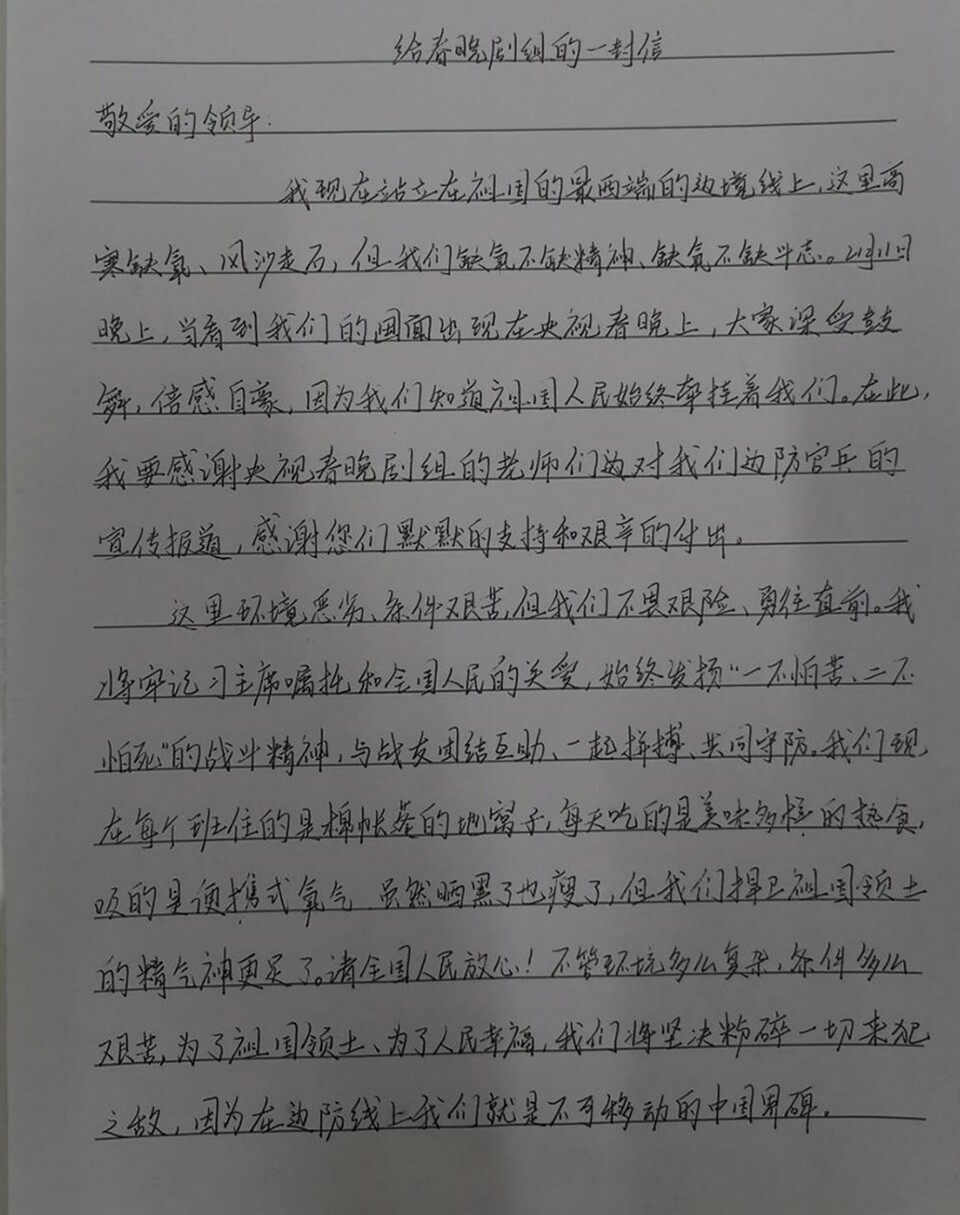 给春晚剧组的一封信
敬爱的领导:
我现在站立在祖国的最西端的边境线上,这里高
寒缺氧、风沙走石,但我们缺氧不缺精神、缺氧不缺斗志。2月11日
晚上,当看到我们的画面出现在央视春晚上,大家深受鼓
舞,倍感自豪,因为我们知道祖国人民始终牵挂着我们。在此,
我要感谢央视春晚剧组的老师们边对我们边防官兵的
宣传报道,感谢您们默默的支持和艰辛的付出。
这里环境恶劣、条件艰苦,但我们不畏艰险、勇往直前。我
将牢记习主席嘱托和全国人民的关爱,始终发扬“一不怕苦、二不
怕死”的战斗精神,与战友团结互助、一起拼搏、共同守防。我们现
在每个班住的是棉帐篷的地窝子,每天吃的是美味多样的热食,
吸的是便携式氧气 虽然晒黑了也瘦了,但我们捍卫祖国领土
的精气神更足了。请全国人民放心!不管环境多么复杂,条件多么
艰苦,为了祖国领土、为了人民幸福,我们将坚决粉碎一切来犯
之敌,因为在边防线上我们就是不可移动的中国界碑。